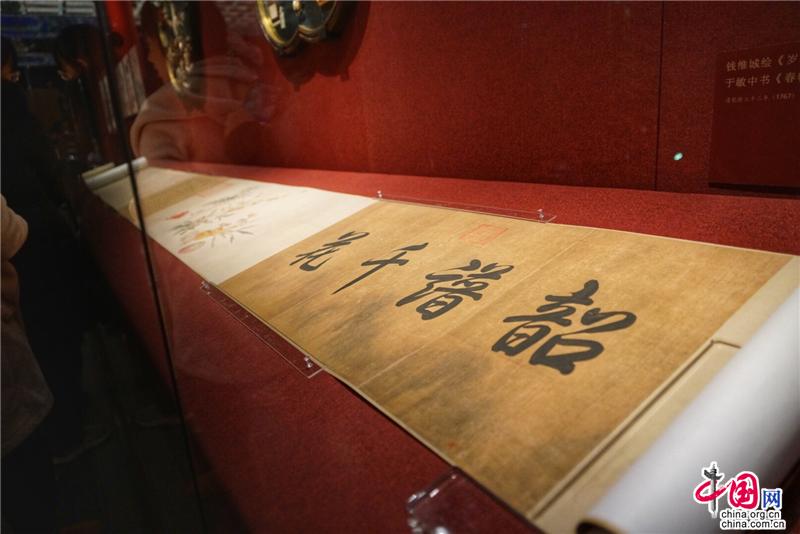 韶譜千花
钱维城绘《岁
于敏中书《春
清乾隆三十二年（1767）
中国网
china.org.cn
china.com.cn